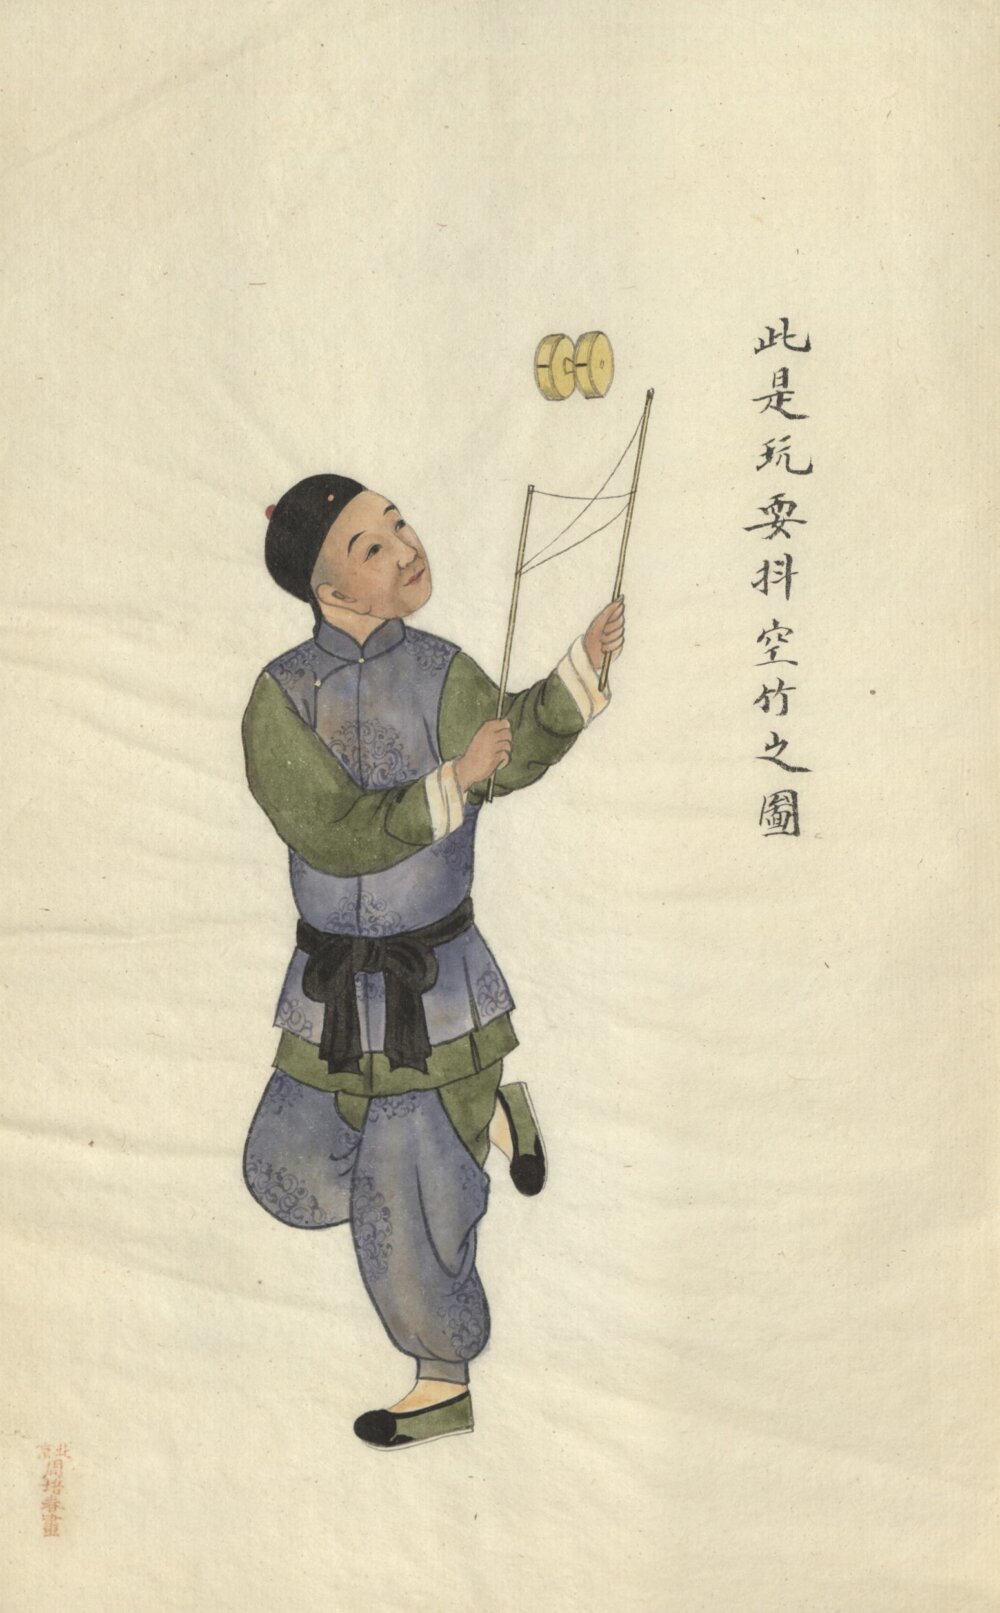 此是玩耍抖空竹之圖
北京
周培春畫